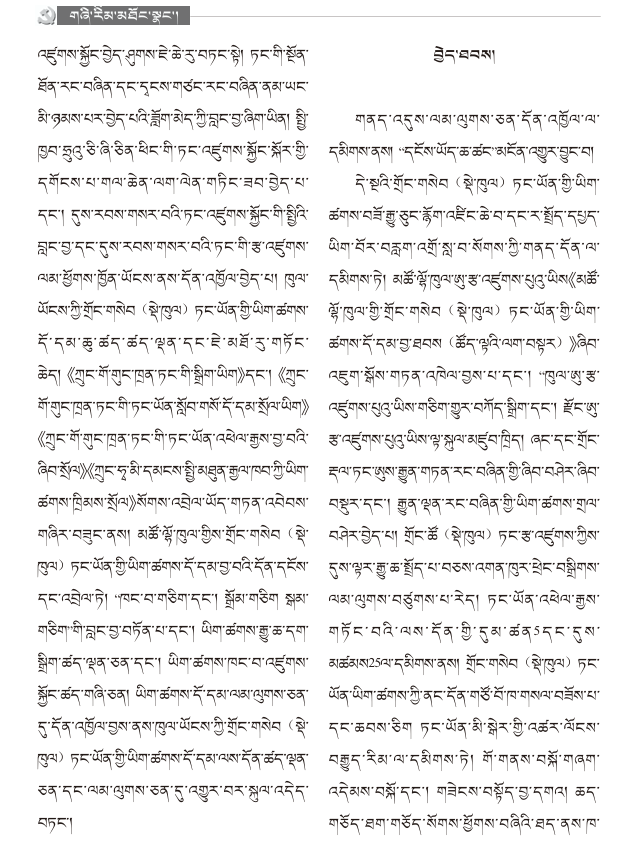 གཞི་རིམ་མཐོང་སྣང་།
འཛུགས་སྐྱོང་བྱེད་ཤུགས་ཇེ་ཆེ་རུ་བཏང་སྟེ། ཏང་གི་སྔོན་
ཐོན་རང་བཞིན་དང་དྭངས་གཙང་རང་བཞིན་ནམ་ཡང་
མི་ཉམས་པར་བྱེད་པའི་ཟློག་མེད་ཀྱི་བླང་བྱ་ཞིག་ཡིན། སྤྱི་
ཁྱབ་ཧྲུའུ་ཅི་ཞི་ཅིན་ཕིང་གི་ཏང་འཛུགས་སྐྱོང་སྐོར་གྱི་
དགོངས་པ་གལ་ཆེན་ལག་ལེན་གཏིང་ཟབ་བྱེད་པ་
དང་། དུས་རབས་གསར་བའི་ཏང་འཛུགས་སྐྱོང་གི་སྤྱིའི་
བླང་བྱ་དང་དུས་རབས་གསར་བའི་ཏང་གི་རྩ་འཛུགས་
ལམ་ཕྱོགས་ཁྱོན་ཡོངས་ནས་དོན་འཁྱོལ་བྱེད་པ། ཁུལ་
ཡོངས་ཀྱི་གྲོང་གསེབ（སྡེ་ཁུལ）ཏང་ཡོན་གྱི་ཡིག་ཚགས་
དོ་དམ་ཆུ་ཚད་ཚད་ལྡན་དང་ཇེ་མཐོ་རུ་གཏོང་
ཆེད། 《ཀྲུང་གོ་གུང་ཁྲན་ཏང་གི་སྒྲིག་ཡིག》དང་། 《ཀྲུང་
གོ་གུང་ཁྲན་ཏང་གི་ཏང་ཡོན་སློབ་གསོ་དོ་དམ་སྲོལ་ཡིག》
《ཀྲུང་གོ་གུང་ཁྲན་ཏང་གི་ཏང་ཡོན་འཕེལ་རྒྱས་བྱ་བའི་
ཞིབ་སྲོལ》《ཀྲུང་ཧྭ་མི་དམངས་སྤྱི་མཐུན་རྒྱལ་ཁབ་ཀྱི་ཡིག་
ཚགས་ཁྲིམས་སྲོལ》སོགས་འབྲེལ་ཡོད་གཏན་འབེབས་
གཞིར་བཟུང་ནས། མཚོ་ལྷོ་ཁུལ་གྱིས་གྲོང་གསེབ（སྡེ་
ཁུལ）ཏང་ཡོན་གྱི་ཡིག་ཚགས་དོ་དམ་བྱ་བའི་དོན་དངོས་
དང་འབྲེལ་ཏེ། “ཁང་བ་གཅིག་དང་། སྒྲོམ་གཅིག སྒམ་
གཅིག”གི་བླང་བྱ་བཏོན་པ་དང་། ཡིག་ཚགས་རྒྱུ་ཆ་དག་
སྒྲིག་ཚད་ལྡན་ཅན་དང་། ཡིག་ཚགས་ཁང་བ་འཛུགས་
སྐྱོང་ཚད་གཞི་ཅན། ཡིག་ཚགས་དོ་དམ་ལམ་ལུགས་ཅན་
དུ་དོན་འཁྱོལ་བྱས་ནས་ཁུལ་ཡོངས་ཀྱི་གྲོང་གསེབ（སྡེ་
ཁུལ）ཏང་ཡོན་གྱི་ཡིག་ཚགས་དོ་དམ་ལས་དོན་ཚད་ལྡན་
ཅན་དང་ལམ་ལུགས་ཅན་དུ་འགྱུར་བར་སྐུལ་འདེད་
བཏང་།
བྱེད་ཐབས།
གནད་འདུས་ལམ་ལུགས་ཅན་དོན་འཁྱོལ་ལ་
དམིགས་ནས། “དངོས་ཡོད་ཆ་ཚང”མངོན་འགྱུར་བྱུང་བ།
དེ་སྔའི་གྲོང་གསེབ（སྡེ་ཁུལ）ཏང་ཡོན་གྱི་ཡིག་
ཚགས་བཟོ་རྒྱུ་ཅུང་རྙོག་འཛིང་ཆེ་བ་དང་ར་སྤྲོད་དཔྱད་
ཡིག་བོར་བརླག་འགྲོ་སླ་བ་སོགས་ཀྱི་གནད་དོན་ལ་
དམིགས་ཏེ། མཚོ་ལྷོ་ཁུལ་ཨུ་རྩ་འཛུགས་པུའུ་ཡིས《མཚོ་
ལྷོ་ཁུལ་གྱི་གྲོང་གསེབ（སྡེ་ཁུལ）ཏང་ཡོན་གྱི་ཡིག་
ཚགས་དོ་དམ་བྱ་ཐབས（ཚོད་ལྟའི་ལག་བསྟར）》ཞིབ་
འཇུག་སྒོས་གཏན་འཁེལ་བྱས་པ་དང་། “ཁུལ་ཨུ་རྩ་
འཛུགས་པུའུ་ཡིས་གཅིག་གྱུར་བཀོད་སྒྲིག་དང་། རྫོང་ཨུ་
རྩ་འཛུགས་པུའུ་ཡིས་ལྟ་སྐུལ་མཛུབ་ཁྲིད། ཞང་དང་གྲོང་
རྡལ་ཏང་ཨུས་རྒྱུན་གཏན་རང་བཞིན་གྱི་ཞིབ་བཤེར་ཞིབ་
བསྡུར་དང་། རྒྱུན་ལྡན་རང་བཞིན་གྱི་ཡིག་ཚགས་གྲལ་
བཤེར་བྱེད་པ། གྲོང་ཚོ（སྡེ་ཁུལ）ཏང་རྩ་འཛུགས་ཀྱིས་
དུས་ལྟར་རྒྱུ་ཆ་སྤྲོད་པ་བཅས་འགན་ཁུར་ཕྲེང་བསྒྲིགས་
ལམ་ལུགས་བཙུགས་པ་རེད། ཏང་ཡོན་འཕེལ་རྒྱས་
གཏོང་བའི་ལས་དོན་གྱི་དུམ་ཚན5དང་དུས་
མཚམས25ལ་དམིགས་ནས། གྲོང་གསེབ（སྡེ་ཁུལ）ཏང་
ཡོན་ཡིག་ཚགས་ཀྱི་ནང་དོན་གཙོ་བོ་ཁ་གསལ་བཟོས་པ་
དང་ཆབས་ཅིག ཏང་ཡོན་མི་སྒེར་གྱི་འཚར་ལོངས་
བརྒྱུད་རིམ་ལ་དམིགས་ཏེ། གོ་གནས་བསྐོ་གཞག་
འདེམས་བསྐོ་དང་། གཟེངས་བསྟོད་བྱ་དགའ། ཆད་
གཅོད་ཐག་གཅོད་སོགས་ཕྱོགས་བཞིའི་ཐད་ནས་ཁ་